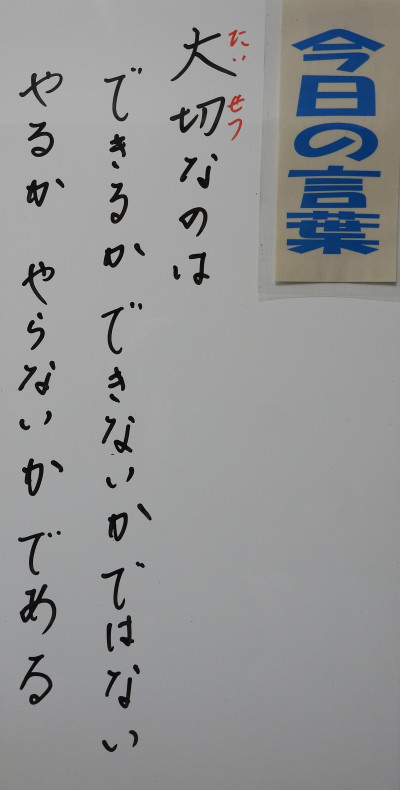 今日の言葉
たい せつ
大切なのは
できるか できないかではない
やるか やらないか である